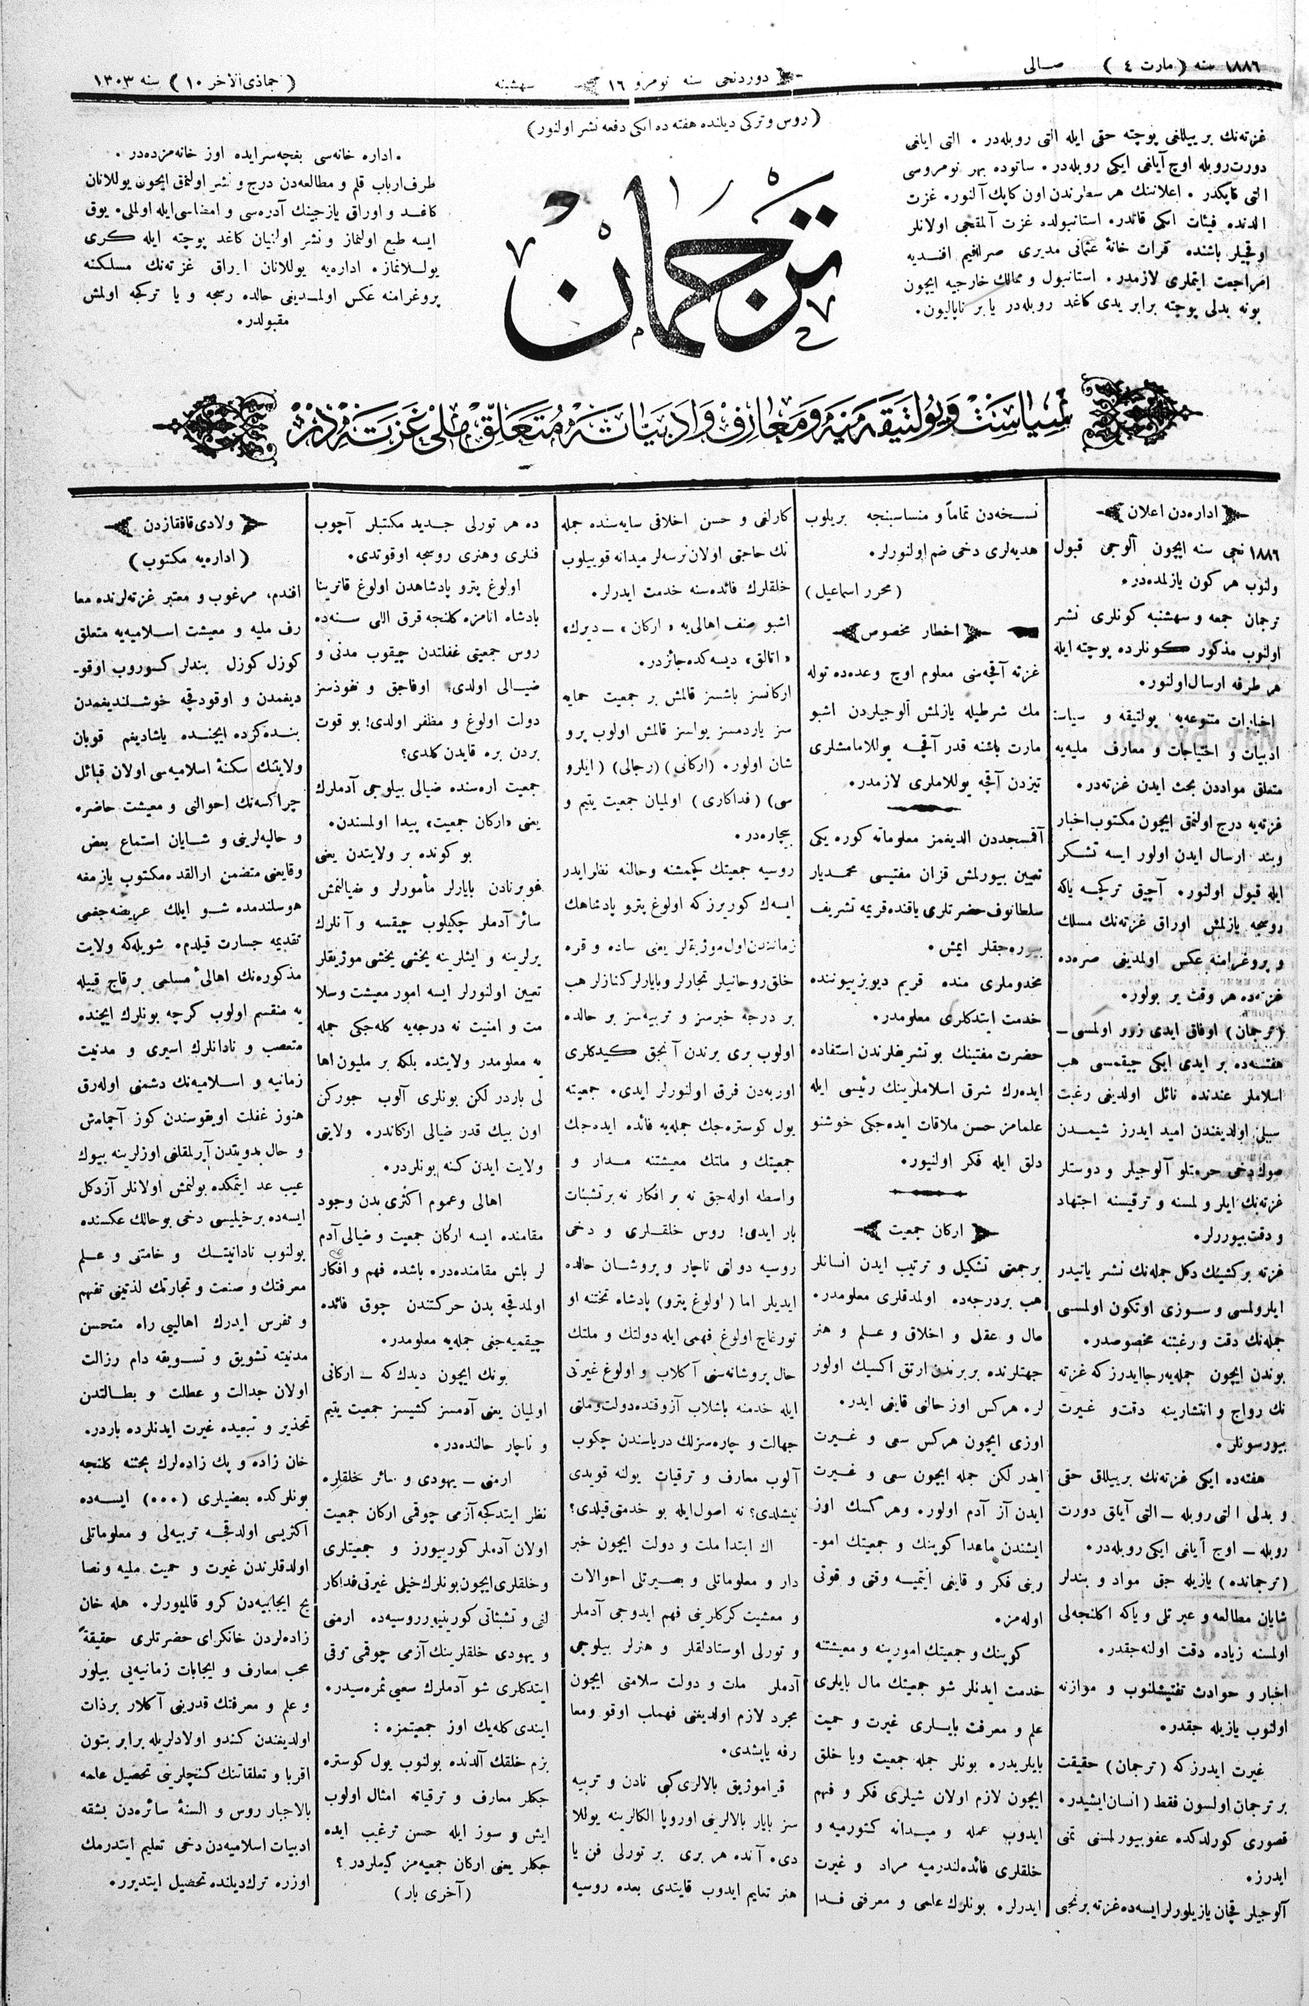 ١٨٨٦ سنه (مارت ٤) صالى
دوردنجى سنه نومرو ١٦
سهشبنه
(جماذى الآخر ١٠) سنه ١٣٠٣
(روس و تركى ديلنده هفته ده ايكى دفعه نشر اولنور)
غزته‌نك بر ييللغى پوچته حقى ايله التى روبله‌در. التى اياغى
دورت روبله اوچ آياغى ايكى روبله‌در. ساتوده بهر نومروسى
التى قاپكدر. اعلاننك هر سطرندن اون كاپك آلنور. غزت
الدنده فيئات ايكى قاتدر. استانبولده غزت آلمقجى اولانلر
اوقجيلر باشنده قرائت خانهٔ عثمانى مديرى صرافيم افنديه
مراجعت ايتملرى لازمدر. استانبول و ممالك خارجيه ايچون
بونه بدلى پوچته برابر يدى كاغد روبله‌در يا بر ناپاليون.
ترجمان
اداره خانه‌سى بغچه‌سرايده اوز خانه‌مزده‌در.
طرف ارباب قلم و مطالعه‌دن درج و نشر اولنمق ايچون يوللانان
كاغد و اوراق يازجينك آدره‌سى و امضاسى ايله اولملى. يوق
ايسه طبع اولنماز و نشر اولنيان كاغد پوچته ايله كرى
يوللانماز. اداره‌يه يوللانان اوراق غزته‌نك مسلكنه
پروغرامنه عكس اولمدينى حالده رسجه و يا تركجه اولمش
مقبولدر.
سياست و پولتيقه منيه و معارف و ادبياته متعلق ملى غزته‌در
اداره‌دن اعلان
١٨٨٦ نجى سنه ايچون آلوجى قبول
ولنوب هر كون يازلمده‌در.
ترجمان جمعه و سهشبنه كونلرى نشر
اولنوب مذكور كونلرده پوچته ايله
هر طرفه ارسال اولنور.
اخبارات متنوعه‌يه پولتيقه و سياست
ادبيات و احتياجات و معارف مليه‌يه
متعلق مواددن بحث ايدن غزته‌در.
غزته‌يه درج اولنمق ايچون مكتوب اخبار
وبند ارسال ايدن اولور ايسه تشكر
ايله قبول اولنور. آچيق تركيچه ياكه
روسجه يازلمش اوراق غزته‌نك مسلك
و پروغرامنه عكس اولمدينى صره‌ده
غزته‌ده هر وقت ير بولور.
(ترجمان) اوفاق ايدى زور اولمسى ـ
هفته‌ده بر ايدى ايكى چيقمسى هب
اسلاملر عندنده نائل اولدينى رغبت
سبلى اولديغندن اميد ايدرز شيمدن
صوك دخى حرمتلو آلوجيلر و دوستلر
غزته‌نك ايلرولمسنه و ترقيسنه اجتهاد
و دقت بيوررلر.
غزته بر كشينك دكل جمله‌نك نشر ياتيدر
ايلرولمسى و سوزى اوتكون اولمسى
جمله‌نك دقت و رغبتنه مخصوصدر.
بوندن ايچون جمله‌يه رجا ايدرز كه غزته
نك رواج و انتشارينه دقت و غيرت
بيورسونلر.
هفته‌ده ايكى غزته‌نك بر ييللق حقى
و بدلى التى روبله ـ التى آياق دورت
روبله ـ اوج آياغى ايكى روبله‌در.
(ترجمانده) يازيله جق مواد و بندلر
شايان مطالعه و عبرتلى و ياكه اكلنجه‌لى
اولمسنه زياده دقت اولنه جقدر.
اخبار و حوادث تفتيشلنوب و موازنه
اولنوب يازيله جقدر.
غيرت ايدرز كه (ترجمان) حقيقت
بر ترجمان اولسون فقط (انسان ايشيدر.
قصورى كورلدكده عفو بيورلمسنى تمنى
ايدرز.
آلوجيلر قچان يازيلورلر ايسه‌ده غزته برنجى
نسخه‌دن تماماً و مناسبنجه بريلوب
هديه‌لرى دخى ضم اولنورلر.
(محرر اسماعيل)
اخطار مخصوص
غزته آقچه‌سنى معلوم اوچ وعده‌ده توله
مك شرطيله يازلمش آلوجيلردن اشبو
مارت باشنه قدر آقچه يوللامامشلرى
تيزدن آقچه يوللاملرى لازمدر.
آقمسجددن الديغمز معلوماته كوره يكى
تعيين بيورلمش قزان مفتيسى محمديار
سلطانوف حضرتلرى ياقنده قريمه تشريف
بيوره‌جقلر ايمش.
مخدوملرى منده قريم ديويزيوننده
خدمت ايتدكلرى معلومدر.
حضرت مفتينك بو تشريفلرندن استفاده
ايده‌رك شرق اسلاملرينك رئيسى ايله
علمامز حسن ملاقات ايده‌جكى خوشنو
دلق ايله فكر اولنيور.
اركان جمعيت
بر جمعتى تشكيل و ترتيب ايدن انسانلر
هب بر درجه‌ده اولمدقلرى معلومدر.
مال و عقل و اخلاق و علم و هنر
جهتلرنده بر برندن ارتق اكسيك اولور
لر. هركس اوز حالنى قايغى ايدر.
اوزى ايچون هركس سعى و غيرت
ايدر لكن جمله ايچون سعى و غيرت
ايدن آز آدم اولور. وهر كسك اوز
ايشندن ماعدا كوينك و جمعيتك امو-
رينى فكر و قايغى ايتميه وقتى و قوتى
اوله‌مز.
كوينك و جمعيتك امورينه و معيشتنه
خدمت ايدنلر شو جمعيتك مال بايلرى
علم و معرفت بايلرى غيرت و حميت
بايلريدره. بونلر جمله جمعيت ويا خلق
ايچون لازم اولان شيلرى فكر و فهم
ايدوب عمله و ميدانه كتورميه و
خلقلرى فائده‌لندرميه مراد و غيرت
ايدرلر. بونلرك علمى و معرفتى فدا
كارلغى و حسن اخلاقى سايه‌سنده جمله
نك حاجتى اولان نرسه‌لر ميدانه قويبيلوب
خلقلرك فائده‌سنه خدمت ايدرلر.
اشبو صنف اهالى‌يه «اركان» ـ ديرك،
«اتالق» ديسه‌كده جائزدر.
اركانسز باشسز قالمش بر جمعيت حمايه
سز ياردمسز يواسز قالمش اولوب پرو
شان اولور. (اركانى) (رجالى) (ايلرو
سى) (فداكارى) اولميان جمعيت يتيم و
بيچاره‌در.
روسيه جمعيتك كچمشنه وحالنه نظر ايدر
ايسه‌ك كوريرز كه اولوغ پترو پادشاهك
زماندن اول موژيقلر يعنى ساده و قره
خلق روحانيلر تجارلر و بايارلر كنازلر هب
بر درجه خبرسز و تربيه‌سز بر حالده
اولوب برى برندن آنجق كيدكلرى
اوربه‌دن فرق اولنورلر ايدى. جمعيته
يول كوستره‌جك جمله‌يه فائده ايده‌جك
جمعيتك و ملتك معيشتنه مدار و
واسطه اوله‌جق نه بر افكار نه بر تشبثات
بار ايدى! روس خلقلرى و دخى
روسيه دولتى ناچار و پروشان حالده
ايديلر اما (اولوغ پترو) پادشاه تختنه او
تورغاچ اولوغ فهمى ايله دولتك و ملتك
حال پروشانه‌سنى آكلاب و اولوغ غيرتى
ايله خدمته باشلاب آزوقنده دولت و ملتى
جهالت و چاره‌سزلك درياسندن چكوب
آلوب معارف و ترقيات يولنه قويدى
نيشلدى؟ نه اصول ايله بو خدمتى قيلدى؟
اك ابتدا ملت و دولت ايچون خبر
دار و معلوماتلى و بصيرتلى احوالات
و معشيت كركلرينى فهم ايدوجى آدملر
و تورلى اوستادلقلر و هنرلر بيلوجى
آدملر ملت و دولت سلامتى ايچون
مجرد لازم اولديغنى فهملب اوقو ومعا
رفه يابشدى.
قرا موژيق بالالرى كبى نادان و تربيه
سز بايار بالالرينى اوروپا الكالرينه يوللا
دى. آنده هر برى بر تورلى فن يا
هنر تعليم ايدوب قايتدى بعده روسيه
ده هر تورلى جديد مكتبلر آچوب
فنلرى وهنرى روسجه اوقوتدى.
اولوغ پترو پادشاهدن اولوغ قاترينا
پادشاه انامزه كلنجه قرق اللى سنه‌ده
روس جمعيتى غفلتدن چيقوب مدنى و
ضيالى اولدى! اوفاجق و نفوذسز
دولت اولوغ و مظفر اولدى! بو قوت
بردن بره قايدن كلدى؟
جمعيت اره‌سنده ضيالى بيلوجى آدملرك
يعنى «اركان جمعيت» پيدا اولمسندن.
بو كونده بر ولايتدن يعنى
غوبرنادن بايارلر مأمورلر و ضيالنمش
سائر آدملر چكيلوب چيقسه و آنلرك
يرلرينه و ايشلرينه يخشى يخشى موژيقلر
تعيين اولنورلر ايسه امور معيشت وسلا
مت و امنيت نه درجه‌يه كله‌جكى جمله
يه معلومدر ولايتده بلكه بر مليون اها
لى باردر لكن بونلرى آلوب جوركن
اون بيك قدر ضيالى اركاندر. ولايتى
ولايت ايدن كنه بونلردر.
اهالى و عموم اكثرى بدن وجود
مقامنده ايسه اركان جمعيت و ضيالى آدم
لر باش مقامنده‌در. باشده فهم و افكار
اولمدقچه بدن حركتندن چوق فائده
چيقميه‌جغى جمله‌يه معلومدر.
بونك ايچون ديدك كه ـ اركانى
اولميان يعنى آدمسز كشيسز جمعيت يتيم
و ناچار حالنده‌در.
ارمنى ـ يهودى و سائر خلقلره
نظر ايتدكجه آزمى چوقمى اركان جمعيت
اولان آدملر كوريورز و جمعيتلرى
و خلقلرى ايچون بونلرك خيلى غيرتى فداكار
لغى و تشبثاتى كورينيور روسيه‌ده ارمنى
و يهودى خلقلرينك آزمى چوقمى ترقى
ايتدكلرى شو آدملرك سعيى ثمره‌سيدر.
ايندى كله‌يك اوز جمعيتمزه :
بزم خلقك آلدنده بولنوب يول كوستره
جكلر معارف و ترقياته امثال اولوب
ايش و سوز ايله حسن ترغيب ايده
جكلر يعنى اركان جمعيه‌مز كيملردر ؟
(آخرى بار)
ولادى قافقازدن
(اداره‌يه مكتوب)
افندم، مرغوب و معتبر غزته‌لرنده معا
رف مليه و معيشت اسلاميه‌يه متعلق
كوزل كوزل بندلر كوروب اوقو-
ديغمدن و اوقودقچه خوشلنديغمدن
بنده‌كزده ايچنده ياشاديغم قوبان
ولايتنك سكنهٔ اسلاميه‌سى اولان قبائل
چراكسه‌نك احوالنى و معيشت حاضره
و حاليه‌لرينى و شايان استماع بعض
وقايعى متضمن ارالقده مكتوب يازمغه
هوسلندمده شو ايلك عريضه‌جغمى
تقديمه جسارت قيلدم. شويله‌كه ولايت
مذكوره‌نك اهالىٔ مسلمى بر قاچ قبيله
يه منقسم اولوب كرچه بونلرك ايچنده
متعصب و نادانلرك اسيرى و مدنيت
زمانيه و اسلاميه‌نك دشمنى اوله‌رق
هنوز غفلت اويقوسندن كوز آچمامش
و حال بدويتدن آيرلمقلغى اوزلرينه بيوك
عيب عد ايتمكده بولنمش اولانلر آزدكل
ايسه‌ده بر خيليسى دخى بو حالك عكسنده
بولنوب نادانيتك و خامتنى و علم
معرفتك و صنعت و تجارتك لذتينى تفهم
و تفرس ايدرك اهاليى راه متحسن
مدنيته تشويق و تسويقه دام رزالت
اولان جدالت و عطلت و بطالتدن
تحذير و تبعيده غيرت ايدنلرده باردر.
خان زاده و پك زاده‌لرك بحثنه كلنجه
بونلركده بعضيلرى (٠٠٠) ايسه‌ده
اكثريسى اولدقچه تربيه‌لى و معلوماتلى
اولدقلرندن غيرت و حميت مليه ونصا
يج ايجابيه‌دن كرو قالميورلر. هله خان
زاده‌لردن خانكراى حضرتلرى حقيقةً
محب معارف و ايجابات زمانيه‌يى بيلور
و علم و معرفتك قدرينى آكلار برذات
اولديغندن كندو اولادلريله برابر بتون
اقربا و تعلقاتنك كنجلرينى تحصيل عامه
بالاجبار روس و السنهٔ سائره‌دن بشقه
ادبيات اسلاميه‌دن دخى تعليم ايتدرمك
اوزره ترك ديلنده تحصيل ايتديرر.